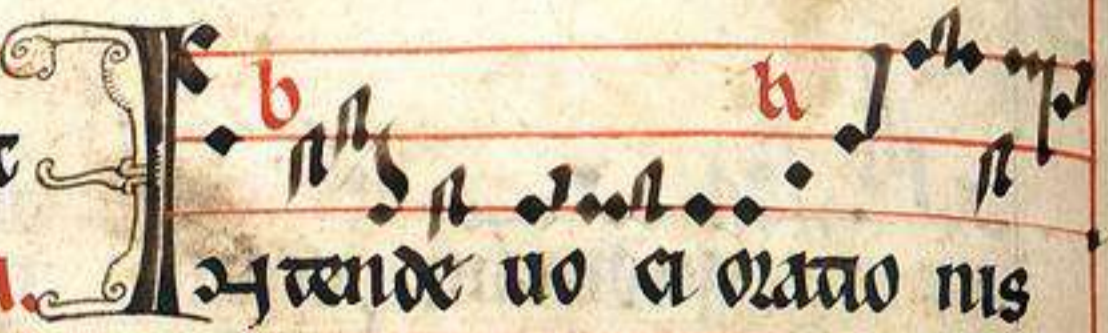 b h
INtende uo ci oratio nis